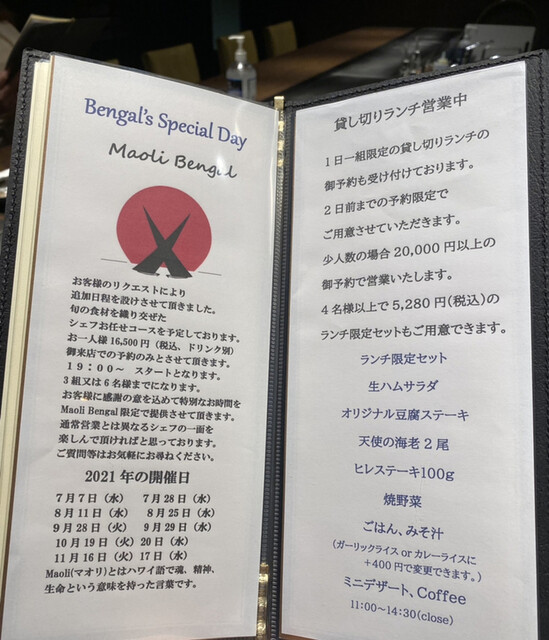 Bengal's Special Day
Maoli Bengal
お客様のリクエストにより
追加日程を設けさせて頂きました。
旬の食材を織り交ぜた
シェフお任せコースを予定しております。
お一人様 16,500 円（税込、ドリンク別）
御来店での予約のみとさせて頂きます。
１９：００～　スタートとなります。
３組又は６名様までになります。
お客様に感謝の意を込めて特別なお時間を
Maoli Bengal 限定で提供させて頂きます。
通常営業とは異なるシェフの一面を
楽しんで頂ければと思っております。
ご質問等はお気軽にお尋ねください。
2021 年の開催日
7 月 7 日（水）　7 月 28 日（水）
8 月 11 日（水）　8 月 25 日（水）
9 月 28 日（火）　9 月 29 日（水）
10 月 19 日（火）20 日（水）
11 月 16 日（火）17 日（水）
Maoli(マオリ)とはハワイ語で魂、精神、
生命という意味を持った言葉です。
貸し切りランチ営業中
１日一組限定の貸し切りランチの
御予約も受け付けております。
２日前までの予約限定で
ご用意させていただきます。
少人数の場合 20,000 円以上の
御予約で営業いたします。
４名様以上で 5,280 円(税込)の
ランチ限定セットもご用意できます。
ランチ限定セット
生ハムサラダ
オリジナル豆腐ステーキ
天使の海老 2 尾
ヒレステーキ100g
焼野菜
ごはん、みそ汁
(ガーリックライス or カレーライスに
＋400 円で変更できます。)
ミニデザート、Coffee
11:00~14:30(close)